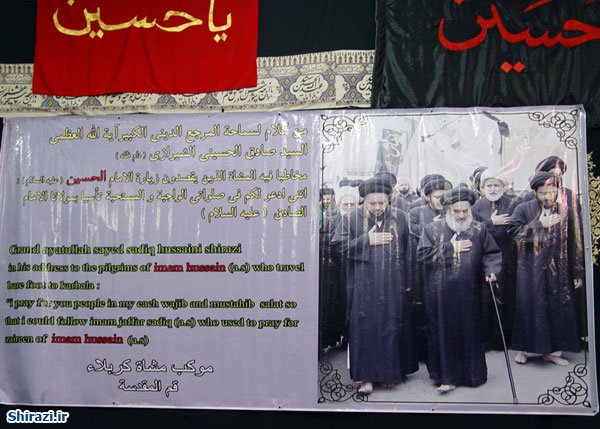 ياحسين
حسين
من كلام لسماحة المرجع الديني الكبير آية الله العظمى
السيد صادق الحسيني الشيرازي ( دام ظله )
مخاطبا فيه المشاة الذين يقصدون زيارة الامام الحسين ( عليه السلام ) :
انني ادعو لكم في صلواتي الواجبة و المستحبة تأسيا بمولانا الامام
الصادق ( عليه السلام )
Grand ayatullah sayed sadiq hussaini shirazi
in his address to the pilgrims of imam hussain (a.s) who travel
bare foot to karbala :
"i pray for you people in my each wajib and mustahib salat so
that i could follow imam jaffar sadiq (a.s) who used to pray for
zaireen of imam hussain (a.s)
موكب مشاة كربلاء
قم المقدسة
Shirazi.ir